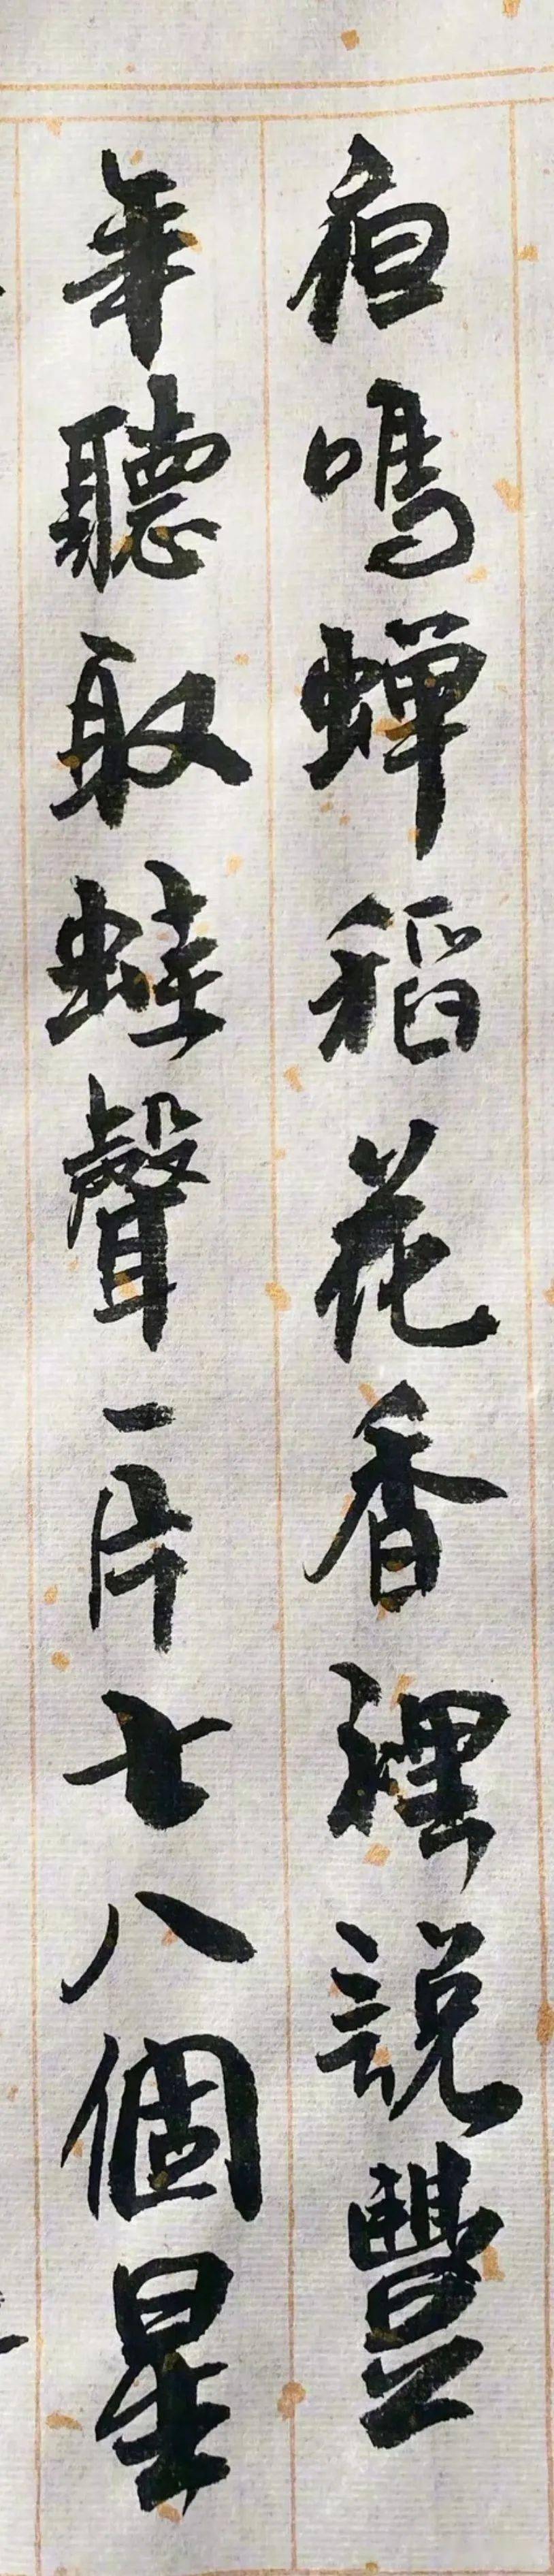 夜鳴蝉稻花香裡說豐
年聽取蛙聲一片七八個星